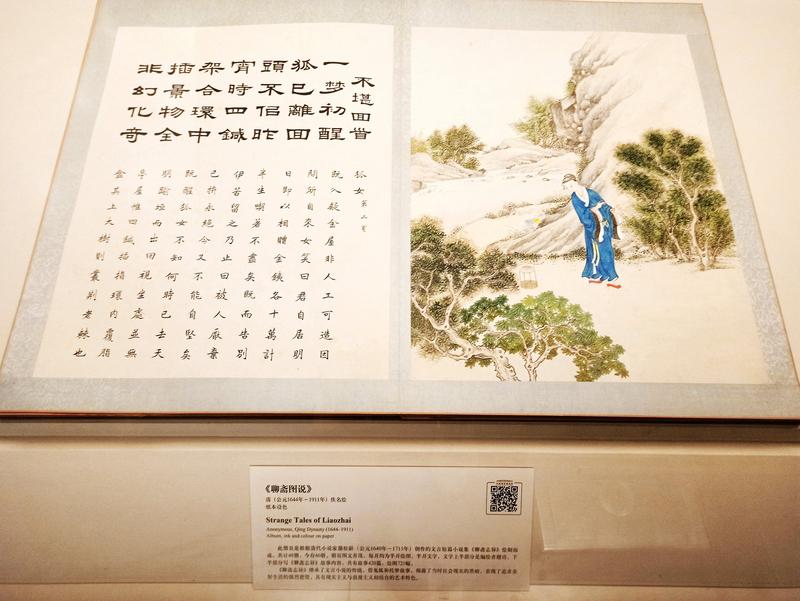 不堪回首
一梦初醒
狐已離回
頭不侣昨
宵時四鍼
架合環中
插景物全
非幻化奇
狐女 第二頁
既入疑金屋非人工可造因
問所自來女笑曰君自居明
日即以相贈金鐵各十萬計
半生喫著不盡矣既而告別
伊苦留之乃止曰被人厭棄
已拚永絕今又不能自堅矣
既醒狐女不知何時已去天
明踰垣而出回視生處並無
亭屋惟四鍼插指環內覆脂
盒其上大樹則叢荊老棘也
《聊斋图说》
清（公元1644年－1911年）佚名绘
纸本设色
Strange Tales of Liaozhai
Anonymous, Qing Dynasty (1644-1911)
Album, ink and colour on paper
此图页是根据清代小说家蒲松龄（公元1640年－1715年）创作的文言短篇小说集《聊斋志异》绘制而
成，共计48册，今存46册，每开均为半开绘图，半开文字，文字上半部分是编绘者题诗，下
半部分写《聊斋志异》故事内容，共有故事420篇，绘图725幅。
《聊斋志异》继承了文言小说的传统，借鬼狐和花妖故事，揭露了当时社会现实的黑暗，表现了追求美
好生活的强烈愿望，具有现实主义与浪漫主义相结合的艺术特色。